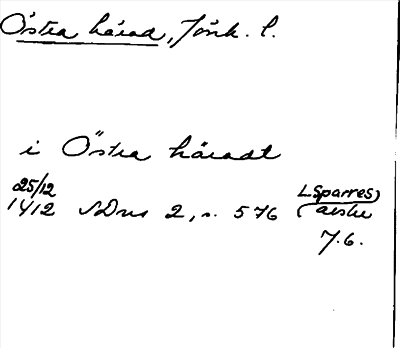 Östra härad, Jönk. l.
i Östra häradt
25/12
1412 SDns 2, s. 576 (L. Sparres)
avskr
J.G.